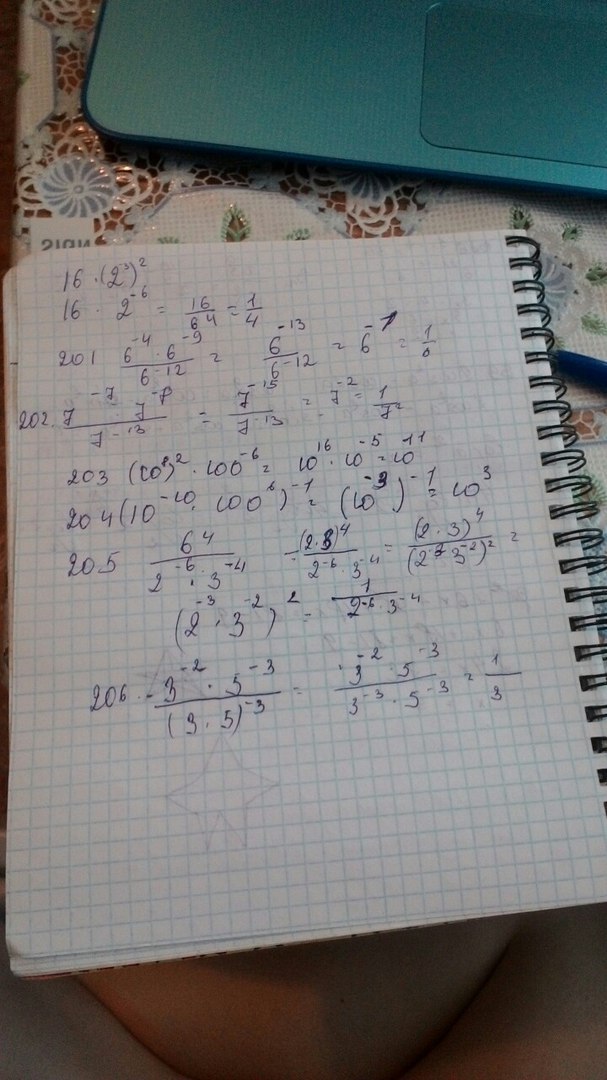 16 · (2³)²
16 · 2⁻⁶ = 16/64 = 1/4
201 6⁻⁴ · 6⁻⁹ / 6⁻¹² = 6⁻¹³ / 6⁻¹² = 6⁻¹ = 1/6
202. 7⁻⁷ 7⁻⁸ / 7⁻¹³ = 7⁻¹⁵ / 7⁻¹³ = 7⁻² = 1/7²
203 (10⁸)² · 100⁻⁶ = 10¹⁶ · 10⁻⁵ = 10¹¹
204 (10⁻¹⁰ · 100⁶)⁻¹ = (10⁻³)⁻¹ = 10³
205 6⁴ / 2⁻⁶ · 3⁻⁴ = (2·3)⁴ / 2⁻⁶ · 3⁻⁴ = (2·3)⁴ / (2⁻³ 3⁻²)² =
(2⁻³ · 3⁻²)² = 1 / 2⁻⁶ · 3⁻⁴
206 · 3⁻² · 5⁻³ / (3 · 5)⁻³ = 3⁻² · 5⁻³ / 3⁻³ · 5⁻³ = 1/3